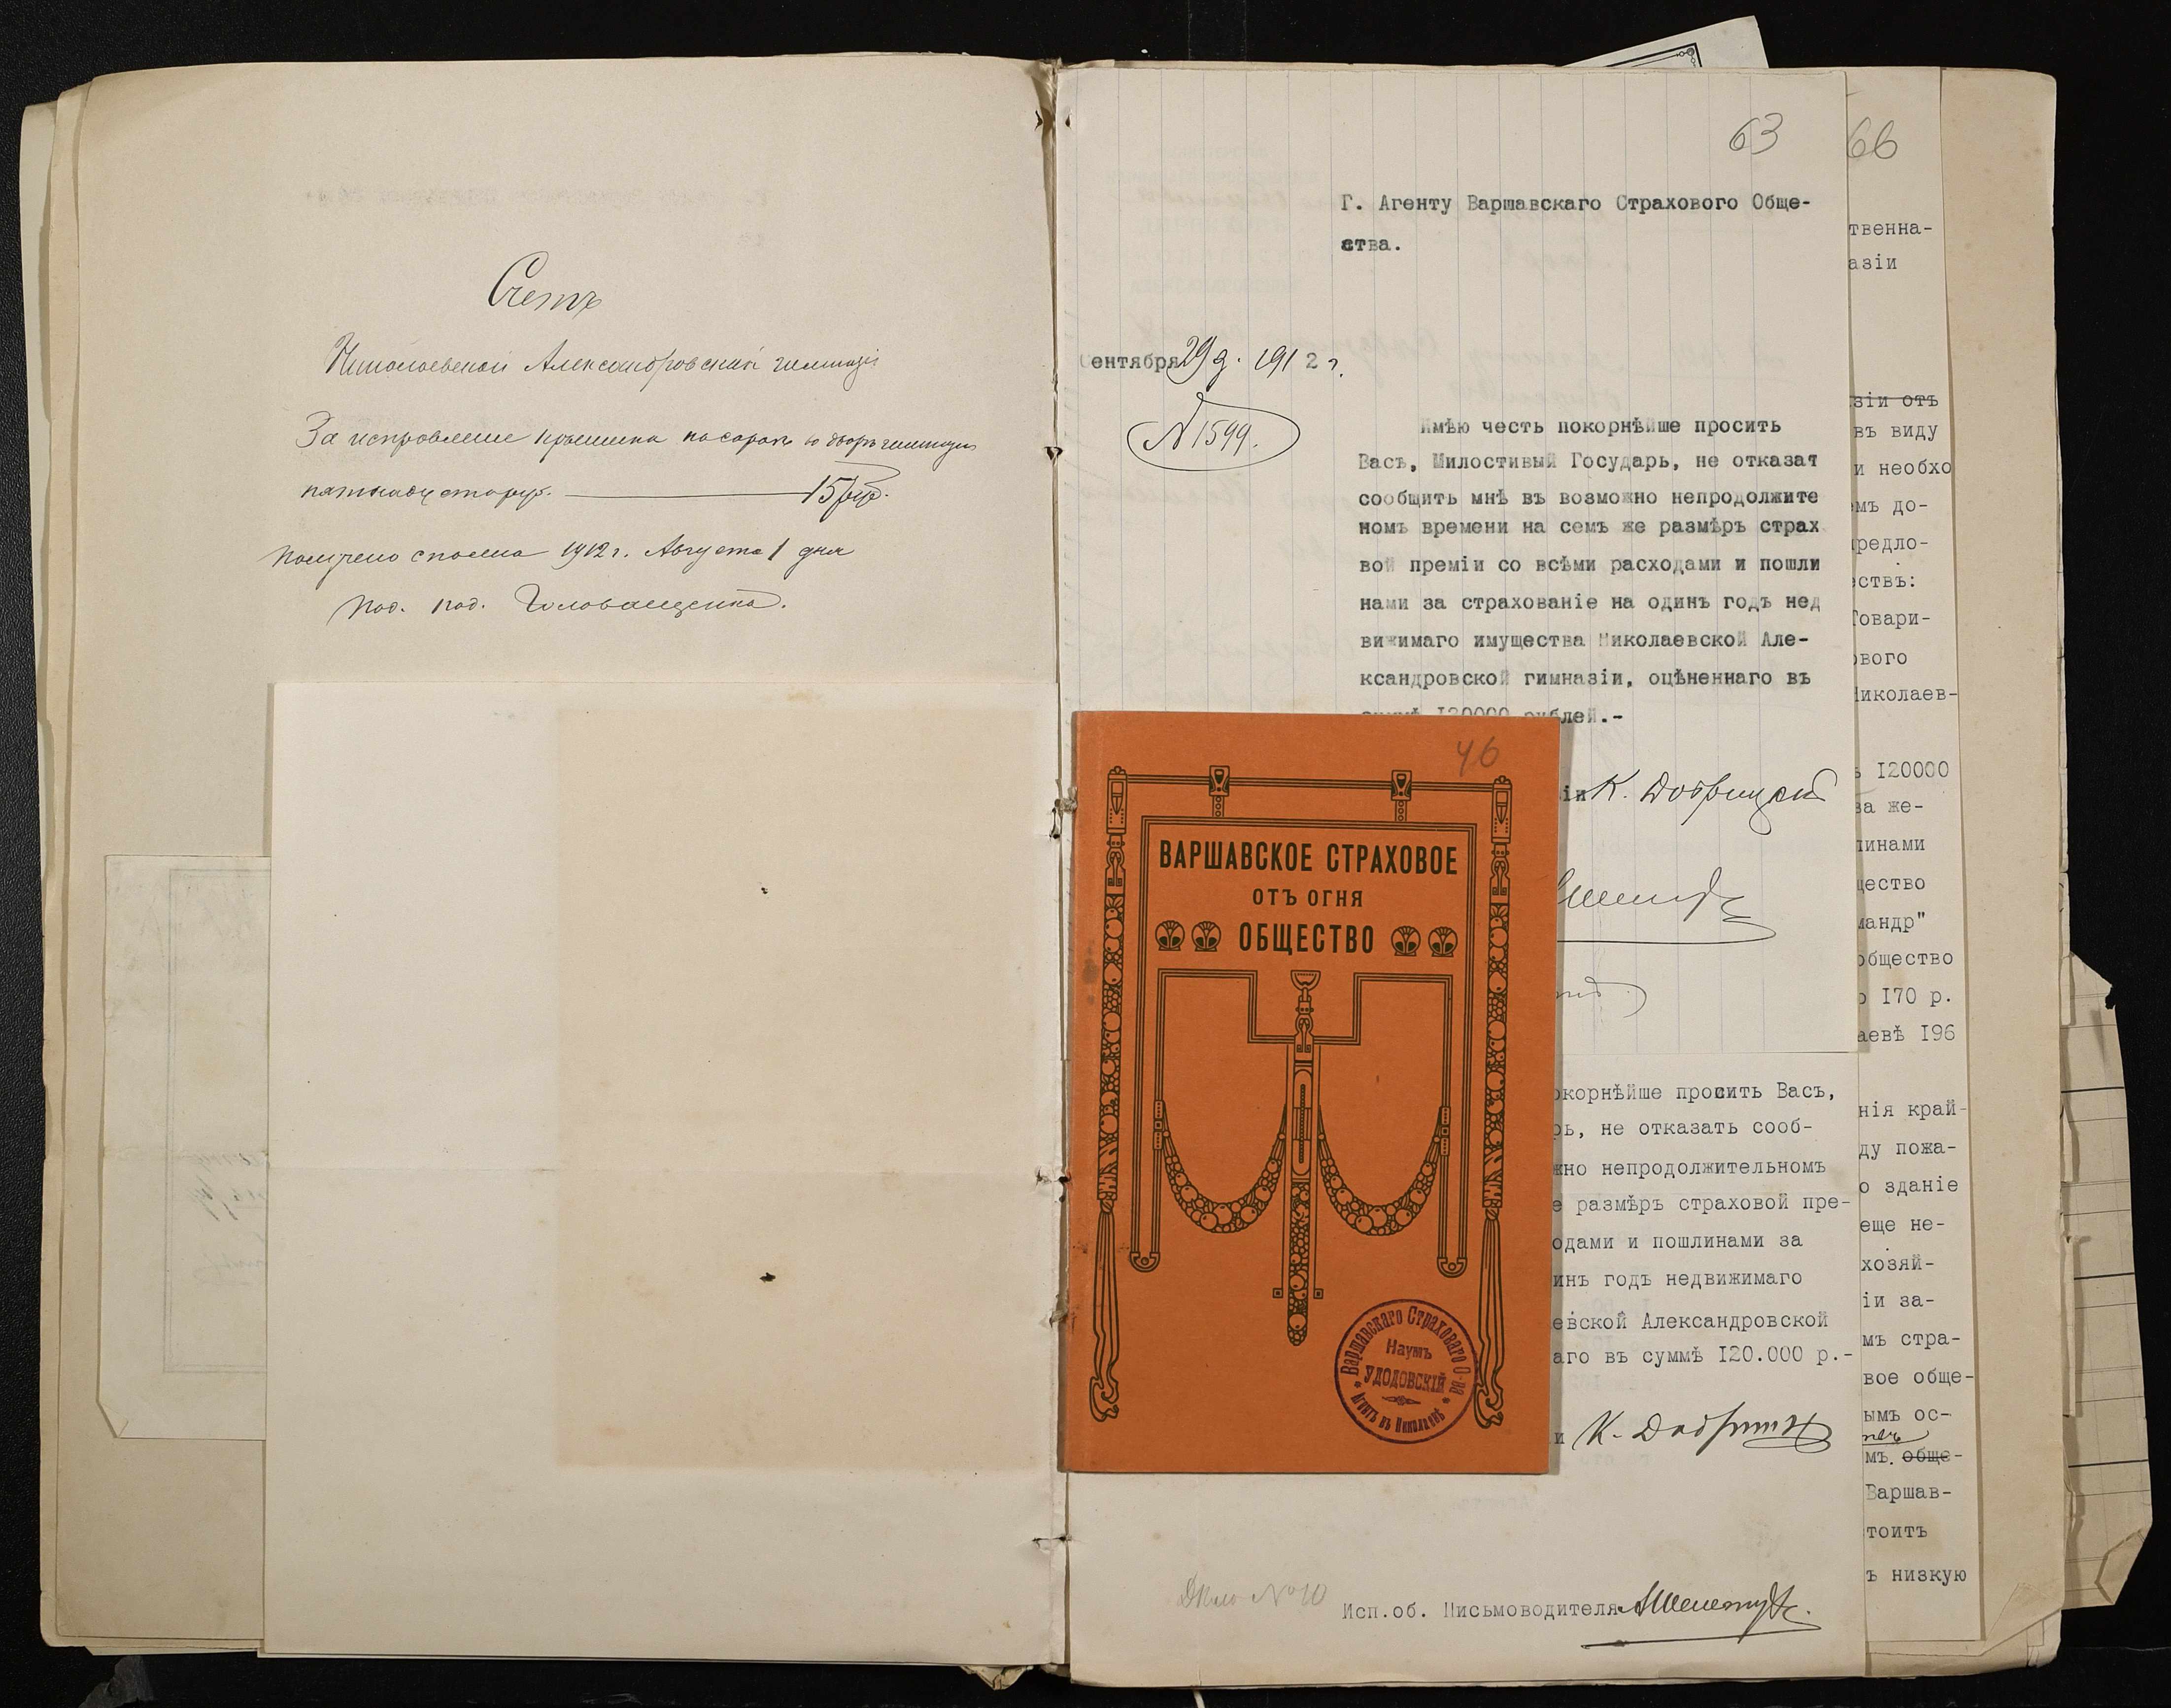 Счетъ
Николаевской Александровской гимназіи
За исправленіе
15 руб.
Получено сполна 1912 г. Августа 1 дня
63
Г. Агенту Варшавскаго Страхового Обще-
ства.
Сентября 29 д. 1912 г.
N 1599.
Имѣю честь покорнѣйше просить
Васъ, Милостивый Государь, не отказат
сообщить мнѣ въ возможно непродолжите
номъ времени на семъ же размѣръ страх
вой преміи со всѣми расходами и пошли
нами за страхованіе на одинъ годъ нед
вижимаго имущества Николаевской Але-
ксандровской гимназіи, оцѣненнаго въ
суммѣ I20000 рублей.-
іи
46
ВАРШАВСКОЕ СТРАХОВОЕ
ОТЪ ОГНЯ
ОБЩЕСТВО
Варшавскаго Страховаго О-ва
Наумъ
УДОДОВСКІЙ
Агентъ въ Николаевѣ
окорнѣйше просить Васъ,
рь, не отказать сооб-
жно непродолжительномъ
е размѣръ страховой пре-
одами и пошлинами за
инъ годъ недвижимаго
евской Александровской
аго въ суммѣ I20.000 р.-
и
Дѣло № 10
Исп.об. Письмоводителя
66
твенна-
азіи
зіи отъ
въ виду
и необхо
емъ до-
предло-
ествъ:
Товари-
ового
Николаев-
ъ I20000
за же-
линами
щество
мандр"
общество
о I70 р.
аевѣ I96
нія край-
ду пожа-
о зданіе
еще не-
хозяй-
іи за-
мъ стра-
вое обще-
ымъ ос-
мъ. обще-
Варшав-
тоитъ
ъ низкую